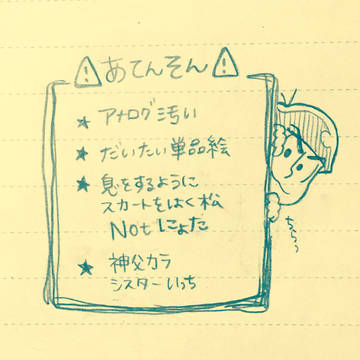 ⚠あてんそん⚠
★ アナログ汚い
★ だいたい単品絵
★ 息をするように
スカートをはく松
Notにょた
★ 神父カラ
シスターいっち
ちらっ